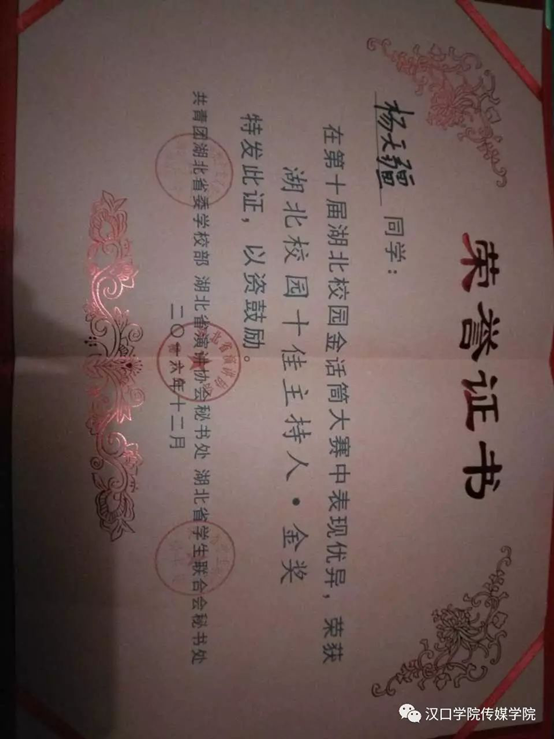 荣誉证书
杨天疆 同学：
在第十届湖北校园金话筒大赛中表现优异，荣获
湖北校园十佳主持人·金奖
特发此证，以资鼓励。
共青团湖北省委学校部 湖北省演讲协会秘书处 湖北省学生联合会秘书处
二〇一六年十二月
汉口学院传媒学院